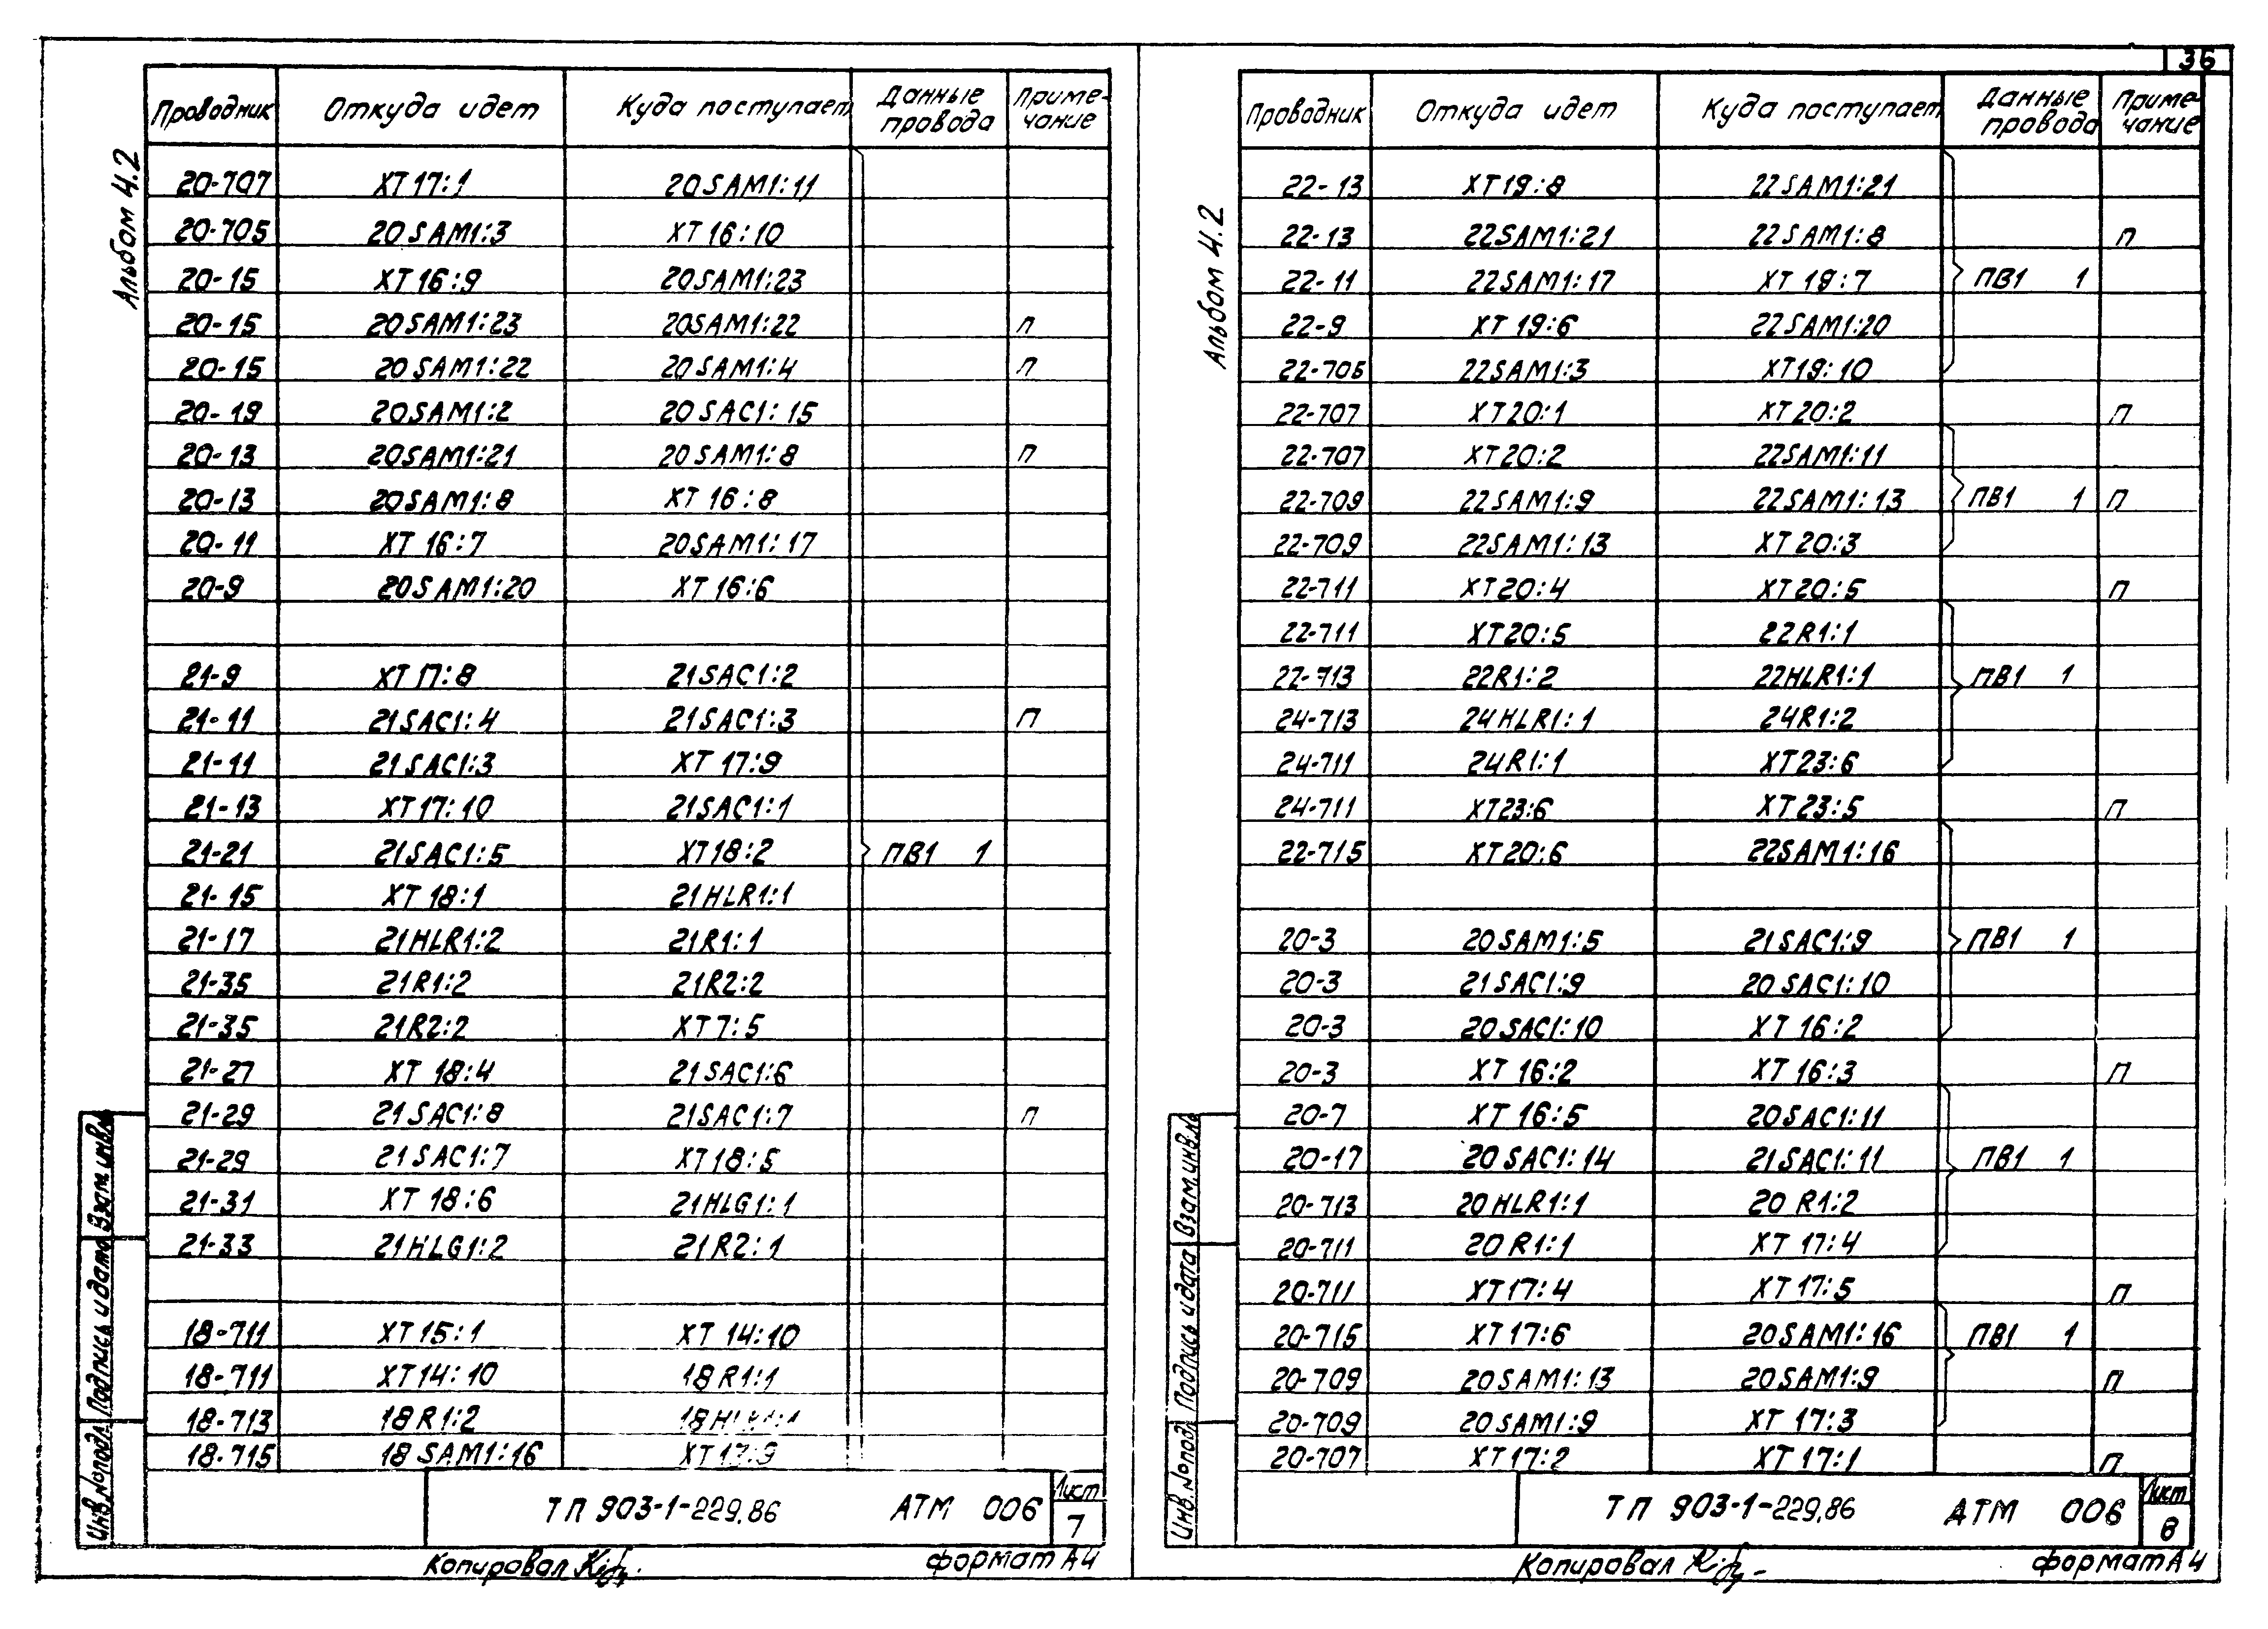 36
Альбом 4.2
Проводник Откуда идет Куда поступает Данные провода Приме-чание
20-707 XT17:1 20SAM1:11
20-705 20SAM1:3 XT16:10
20-15 XT16:9 20SAM1:23
20-15 20SAM1:23 20SAM1:22 п
20-15 20SAM1:22 20SAM1:4 п
20-19 20SAM1:2 20SAC1:15
20-13 20SAM1:21 20SAM1:8 п
20-13 20SAM1:8 XT16:8
20-11 XT16:7 20SAM1:17
20-9 20SAM1:20 XT16:6
21-9 XT17:8 21SAC1:2
21-11 21SAC1:4 21SAC1:3 п
21-11 21SAC1:3 XT17:9
21-13 XT17:10 21SAC1:1
21-21 21SAC1:5 XT18:2 ПВ1 1
21-15 XT18:1 21HLR1:1
21-17 21HLR1:2 21R1:1
21-35 21R1:2 21R2:2
21-35 21R2:2 XT7:5
21-27 XT18:4 21SAC1:6
21-29 21SAC1:8 21SAC1:7 п
21-29 21SAC1:7 XT18:5
21-31 XT18:6 21HLG1:1
21-33 21HLG1:2 21R2:1
18-711 XT15:1 XT14:10
18-711 XT14:10 18R1:1
18-713 18R1:2
18-715 18SAM1:16
Инв.№подл. Подпись и дата Взам.инв.№
ТП 903-1-229.86 АТМ 006 Лист 7
Копировал формат А4
Альбом 4.2
Проводник Откуда идет Куда поступает Данные провода Приме-чание
22-13 XT19:8 22SAM1:21
22-13 22SAM1:21 22SAM1:8 п
22-11 22SAM1:17 XT19:7 ПВ1 1
22-9 XT19:6 22SAM1:20
22-705 22SAM1:3 XT19:10
22-707 XT20:1 XT20:2 п
22-707 XT20:2 22SAM1:11
22-709 22SAM1:9 22SAM1:13 ПВ1 1 п
22-709 22SAM1:13 XT20:3
22-711 XT20:4 XT20:5 п
22-711 XT20:5 22R1:1
22-713 22R1:2 22HLR1:1 ПВ1 1
24-713 24HLR1:1 24R1:2
24-711 24R1:1 XT23:6
24-711 XT23:6 XT23:5 п
22-715 XT20:6 22SAM1:16
20-3 20SAM1:5 21SAC1:9 ПВ1 1
20-3 21SAC1:9 20SAC1:10
20-3 20SAC1:10 XT16:2
20-3 XT16:2 XT16:3 п
20-7 XT16:5 20SAC1:11
20-17 20SAC1:14 21SAC1:11 ПВ1 1
20-713 20HLR1:1 20R1:2
20-711 20R1:1 XT17:4
20-711 XT17:4 XT17:5 п
20-715 XT17:6 20SAM1:16 ПВ1 1
20-709 20SAM1:13 20SAM1:9 п
20-709 20SAM1:9 XT17:3
20-707 XT17:2 XT17:1 п
Инв.№подл. Подпись и дата Взам.инв.№
ТП 903-1-229.86 АТМ 006 Лист 8
Копировал формат А4